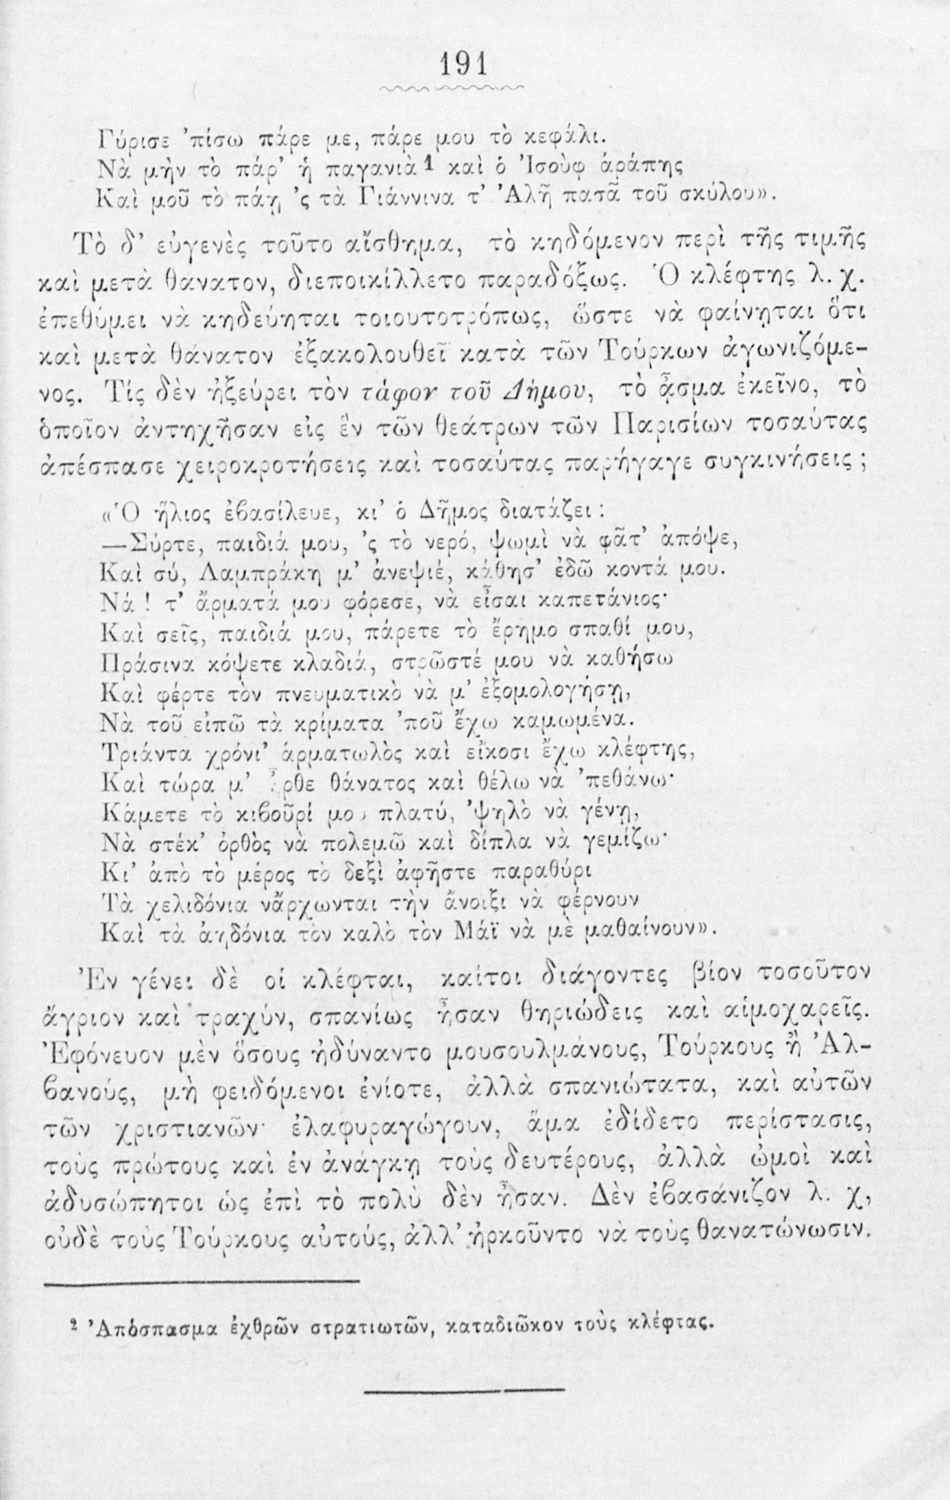 191
Γύρισε ’πίσω πάρε με, πάρε μου τὸ κεφάλι.
Νὰ μὴν τὸ πάρ’ ἡ παγανιὰ¹ καὶ ὁ Ἰσοὺφ ἀράπης
Καὶ μοῦ τὸ πάῃ ’ς τὰ Γιάννινα τ’ Ἀλῆ πασᾶ τοῦ σκύλου».
Τὸ δ’ εὐγενὲς τοῦτο αἴσθημα, τὸ κηδόμενον περὶ τῆς τιμῆς
καὶ μετὰ θάνατον, διεποικίλλετο παραδόξως. Ὁ κλέφτης λ. χ.
ἐπεθύμει νὰ κηδεύηται τοιουτοτρόπως, ὥστε νὰ φαίνηται ὅτι
καὶ μετὰ θάνατον ἐξακολουθεῖ κατὰ τῶν Τούρκων ἀγωνιζόμε-
νος. Τίς δὲν ἠξεύρει τὸν τάφον τοῦ Δήμου, τὸ ᾆσμα ἐκεῖνο, τὸ
ὁποῖον ἀντηχῆσαν εἰς ἓν τῶν θεάτρων τῶν Παρισίων τοσαύτας
ἀπέσπασε χειροκροτήσεις καὶ τοσαύτας παρήγαγε συγκινήσεις ;
«Ὁ ἥλιος ἐβασίλευε, κι’ ὁ Δῆμος διατάζει :
—Σύρτε, παιδιά μου, ’ς τὸ νερό, ψωμὶ νὰ φᾶτ’ ἀπόψε,
Καὶ σύ, Λαμπράκη μ’ ἀνεψιέ, κάθησ’ ἐδῶ κοντά μου.
Νά ! τ’ ἄρματά μου φόρεσε, νὰ εἶσαι καπετάνιος·
Καὶ σεῖς, παιδιά μου, πάρετε τὸ ἔρημο σπαθί μου,
Πράσινα κόψετε κλαδιά, στρῶστέ μου νὰ καθήσω
Καὶ φέρτε τὸν πνευματικὸ νὰ μ’ ἐξομολογήσῃ,
Νὰ τοῦ εἰπῶ τὰ κρίματα ’ποῦ ἔχω καμωμένα.
Τριάντα χρόνι’ ἁρματωλὸς καὶ εἴκοσι ἔχω κλέφτης,
Καὶ τώρα μ’ ἦρθε θάνατος καὶ θέλω νὰ ’πεθάνω·
Κάμετε τὸ κιβοῦρί μου πλατύ, ’ψηλὸ νὰ γένῃ,
Νὰ στέκ’ ὀρθὸς νὰ πολεμῶ καὶ δίπλα νὰ γεμίζω·
Κι’ ἀπὸ τὸ μέρος τὸ δεξὶ ἀφῆστε παραθύρι
Τὰ χελιδόνια νἄρχωνται τὴν ἄνοιξι νὰ φέρνουν
Καὶ τὰ ἀηδόνια τὸν καλὸ τὸν Μάϊ νὰ μὲ μαθαίνουν».
Ἐν γένει δὲ οἱ κλέφται, καίτοι διάγοντες βίον τοσοῦτον
ἄγριον καὶ τραχύν, σπανίως ἦσαν θηριώδεις καὶ αἱμοχαρεῖς.
Ἐφόνευον μὲν ὅσους ἠδύναντο μουσουλμάνους, Τούρκους ἢ Ἀλ-
βανούς, μὴ φειδόμενοι ἐνίοτε, ἀλλὰ σπανιώτατα, καὶ αὐτῶν
τῶν χριστιανῶν· ἐλαφυραγώγουν, ἅμα ἐδίδετο περίστασις,
τοὺς πρώτους καὶ ἐν ἀνάγκῃ τοὺς δευτέρους, ἀλλὰ ὠμοὶ καὶ
ἀδυσώπητοι ὡς ἐπὶ τὸ πολὺ δὲν ἦσαν. Δὲν ἐβασάνιζον λ. χ,
οὐδὲ τοὺς Τούρκους αὐτούς, ἀλλ’ ἠρκοῦντο νὰ τοὺς θανατώνωσιν.
² Ἀπόσπασμα ἐχθρῶν στρατιωτῶν, καταδιῶκον τοὺς κλέφτας.